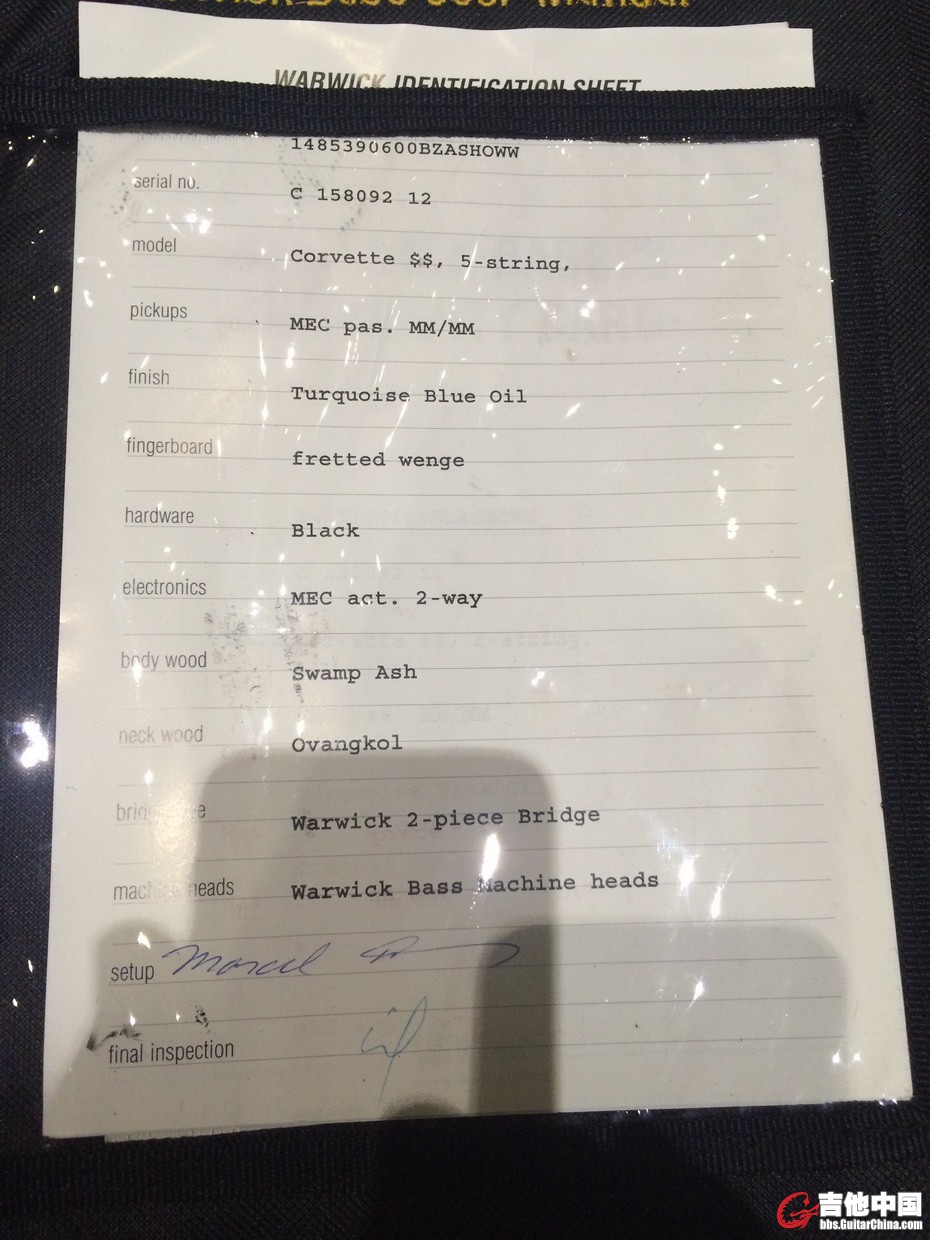 WARWICK IDENTIFICATION SHEET
1485390600BZASHOWW
serial no. C 158092 12
model Corvette $$, 5-string,
pickups MEC pas. MM/MM
finish Turquoise Blue Oil
fingerboard fretted wenge
hardware Black
electronics MEC act. 2-way
body wood Swamp Ash
neck wood Ovangkol
Warwick 2-piece Bridge
machine heads Warwick Bass Machine heads
setup Marcel
final inspection
吉他中国
bbs.GuitarChina.com